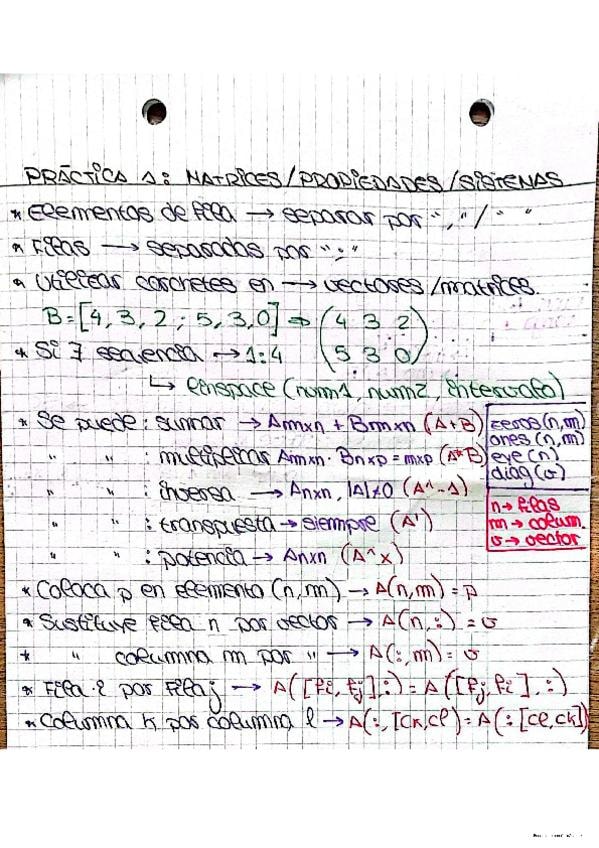 PRÁCTICA 1: MATRICES/PROPIEDADES/SISTEMAS
* Elementos de fila → separar por "," / " "
* Filas → separadas por ";"
* Utilizar corchetes en → vectores/matrices
B=[4,3,2;5,3,0] ⇒ (4 3 2
5 3 0)
* Si ∃ secuencia → 1:4
↳ linspace (num1, num2, intervalo)
* Se puede: sumar → Amxn + Bmxn (A+B)
" " : multiplicar Amxn · Bnxp = mxp (A*B)
" " : inversa → Anxn, |A|≠0 (A^-1)
" " : transpuesta → siempre (A')
" " : potencia → Anxn (A^x)
zeros(n,m)
ones(n,m)
eye(n)
diag(v)
n→ filas
m→ colum.
v→ vector
* Coloca p en elemento (n,m) → A(n,m) = p
* Sustituye fila n por vector → A(n,:) = v
* " columna m por " → A(:,m) = v
* Fila i por Fila j → A([fi,fj],:) = A([fj,fi],:)
* Columna k por columna l → A(:,[ck,cl) = A(:[cl,ck])